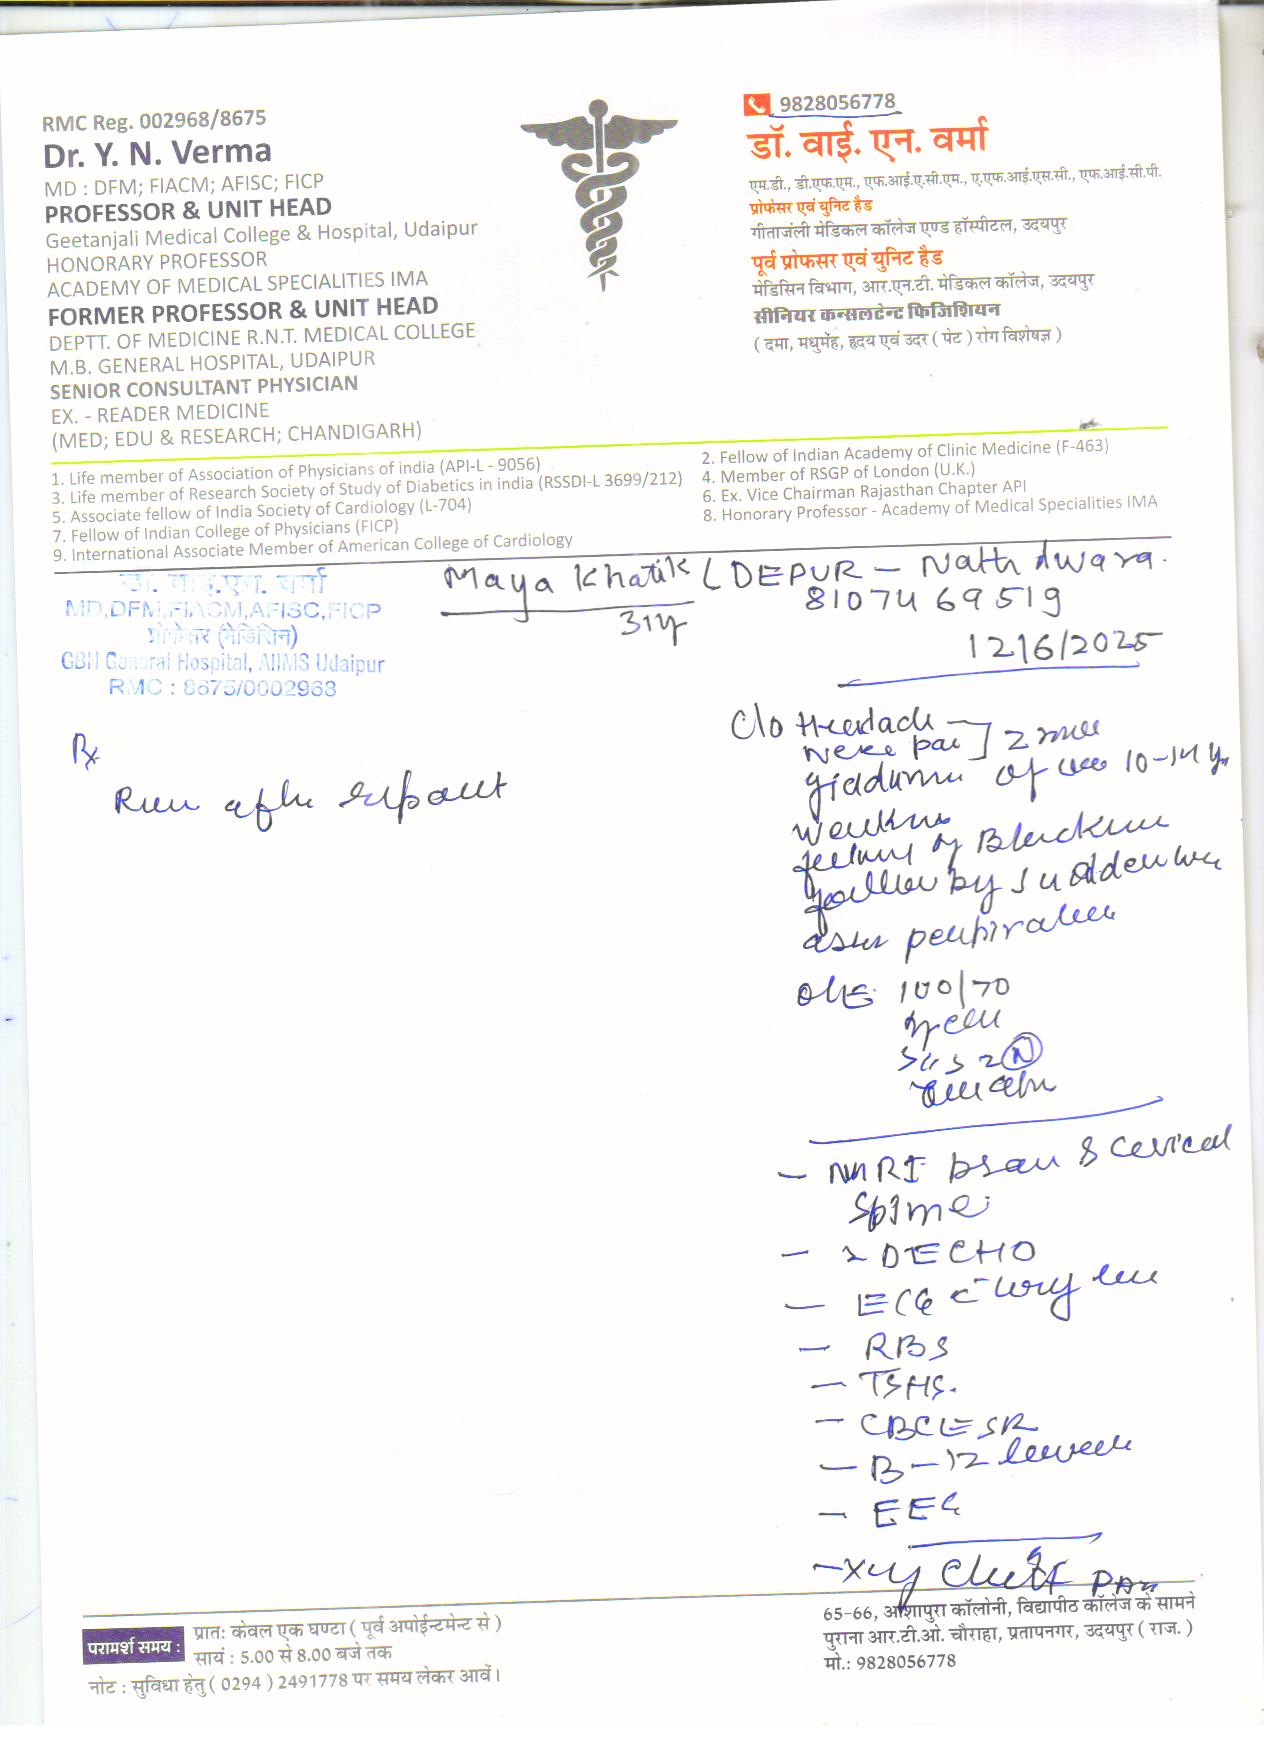 RMC Reg. 002968/8675
Dr. Y. N. Verma
MD : DFM; FIACM; AFISC; FICP
PROFESSOR & UNIT HEAD
Geetanjali Medical College & Hospital, Udaipur
HONORARY PROFESSOR
ACADEMY OF MEDICAL SPECIALITIES IMA
FORMER PROFESSOR & UNIT HEAD
DEPTT. OF MEDICINE R.N.T. MEDICAL COLLEGE
M.B. GENERAL HOSPITAL, UDAIPUR
SENIOR CONSULTANT PHYSICIAN
EX. - READER MEDICINE
(MED; EDU & RESEARCH; CHANDIGARH)
9828056778
डॉ. वाई. एन. वर्मा
एम.डी., डी.एफ.एम., एफ.आई.ए.सी.एम., ए.एफ.आई.एस.सी., एफ.आई.सी.पी.
प्रोफेसर एवं युनिट हैड
गीताजंली मेडिकल कॉलेज एण्ड हॉस्पीटल, उदयपुर
पूर्व प्रोफसर एवं युनिट हैड
मेडिसिन विभाग, आर.एन.टी. मेडिकल कॉलेज, उदयपुर
सीनियर कन्सलटेन्ट फिजिशियन
( दमा, मधुमेंह, हृदय एवं उदर ( पेट ) रोग विशेषज्ञ )
1. Life member of Association of Physicians of india (API-L - 9056)
2. Fellow of Indian Academy of Clinic Medicine (F-463)
3. Life member of Research Society of Study of Diabetics in india (RSSDI-L 3699/212)
4. Member of RSGP of London (U.K.)
5. Associate fellow of India Society of Cardiology (L-704)
6. Ex. Vice Chairman Rajasthan Chapter API
7. Fellow of Indian College of Physicians (FICP)
8. Honorary Professor - Academy of Medical Specialities IMA
9. International Associate Member of American College of Cardiology
डॉ. वाई.एन. वर्मा
MD,DFM,FIACM,AFISC,FICP
प्रोफेसर (मेडिसिन)
GBH General Hospital, AIIMS Udaipur
RMC : 8675/0002963
Maya Khatik DEPUR - Nathdwara.
31y 8107469519
12/6/2025
Rx
after
C/o Headache
2
10-14 y
of
by sudden
O/E 100/70
S1S2 N
- MRI brain & cervical
spine
- 2DECHO
- ECG c̄ long
- RBS
- TSHS.
- CBC ESR
- B-12
- EEG
- Xray Chest PA
परामर्श समय :
प्रात: केवल एक घण्टा ( पूर्व अपोईन्टमेन्ट से )
सायं : 5.00 से 8.00 बजे तक
नोट : सुविधा हेतु ( 0294 ) 2491778 पर समय लेकर आवें।
65-66, आशापुरा कॉलोनी, विद्यापीठ कॉलेज के सामने
पुराना आर.टी.ओ. चौराहा, प्रतापनगर, उदयपुर ( राज. )
मो.: 9828056778